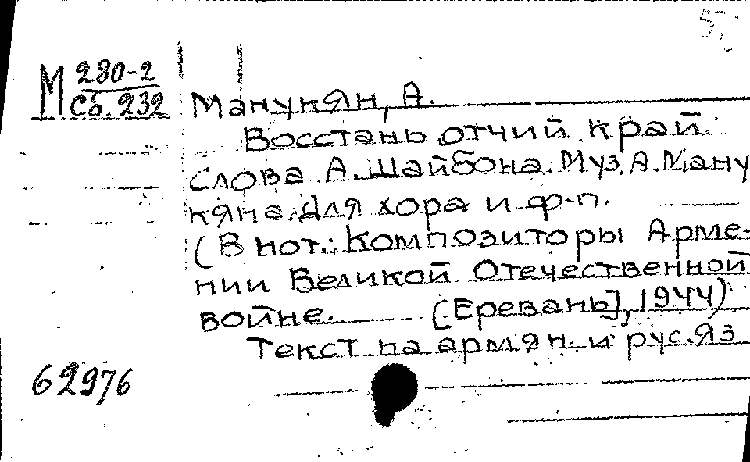 5
М 280-2
Сб. 232
Манукян, А.
Восстань отчий край
Слова А. Шайбона. Муз. А. Ману
кяна. Для хора и ф-п.
(В нот.: Композиторы Арме-
нии Великой Отечественной
войне. [Ереван], 1944)
Текст на армян. и рус. яз
62976